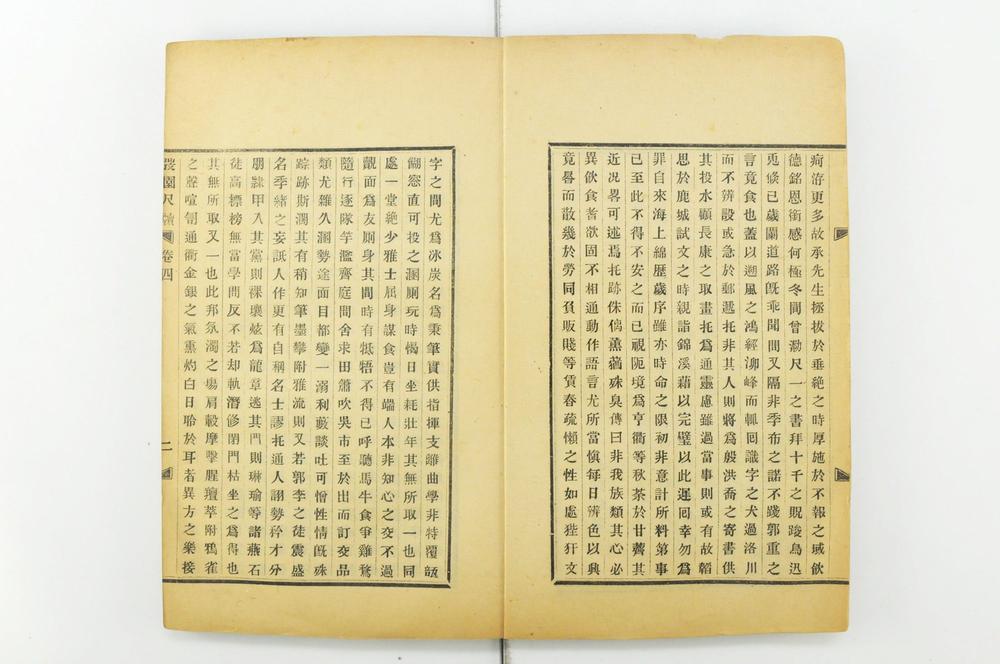 疴洊更多故承先生拯拔於垂絶之時厚施於不報之域飲
德銘恩銜感何極冬間曾泐尺一之書拜十千之貺踆烏迅
兎倏已歲闌道路旣乖聞問又隔非季布之諾不踐郭重之
言竟食也蓋以遡風之鴻經泖峰而輒囘識字之犬過洛川
而不辨設或急於郵遞托非其人則將爲殷洪喬之寄書供
其投水顧長康之取畫托爲通靈慮雖過當事則或有故韜
思於鹿城試文之時親詣錦溪藉以完璧以此遲囘幸勿爲
罪自來海上綿歷歲序雖亦時命之限初非意計所料第事
已至此不得不安之而已視阨境爲亨衢等秋荼於甘薺其
近況畧可述焉托跡侏𠌯薰蕕殊臭傳曰非我族類其心必
異飲食耆欲固不相通動作語言尤所當愼每日辨色以興
竟晷而散幾於勞同負販賤等賃舂疏懶之性如處狴犴文
字之間尤爲冰炭名爲秉筆實供指揮支離曲學非特覆瓿
餬窓直可投之溷厠玩時愒日坐耗壯年其無所取一也同
處一堂絶少雅士屈身謀食豈有端人本非知心之交不過
覿面爲友厠身其間時有牴牾不得已呼聽馬牛食爭雞鶩
隨行逐隊竽濫齊庭問舍求田簫吹吳市至於出而訂交品
類尤雜久溷勢途面目都變一溺利藪談吐可憎性情旣殊
踪跡斯濶其有稍知筆墨攀附雅流則又若郭李之徒震盛
名季緒之妄詆人作更有自稱名士謬托通人詡勢矜才分
朋隸甲入其黨則裸壤炫爲龍章逃其門則琳瑜等諸燕石
徒高標榜無當學問反不若却軌潛修閉門枯坐之爲得也
其無所取又一也此邦氛濁之場肩轂摩擊腥羶萃附鴉雀
之聲喧訇通衢金銀之氣熏灼白日聆於耳者異方之樂接
弢園尺牘 卷四 二